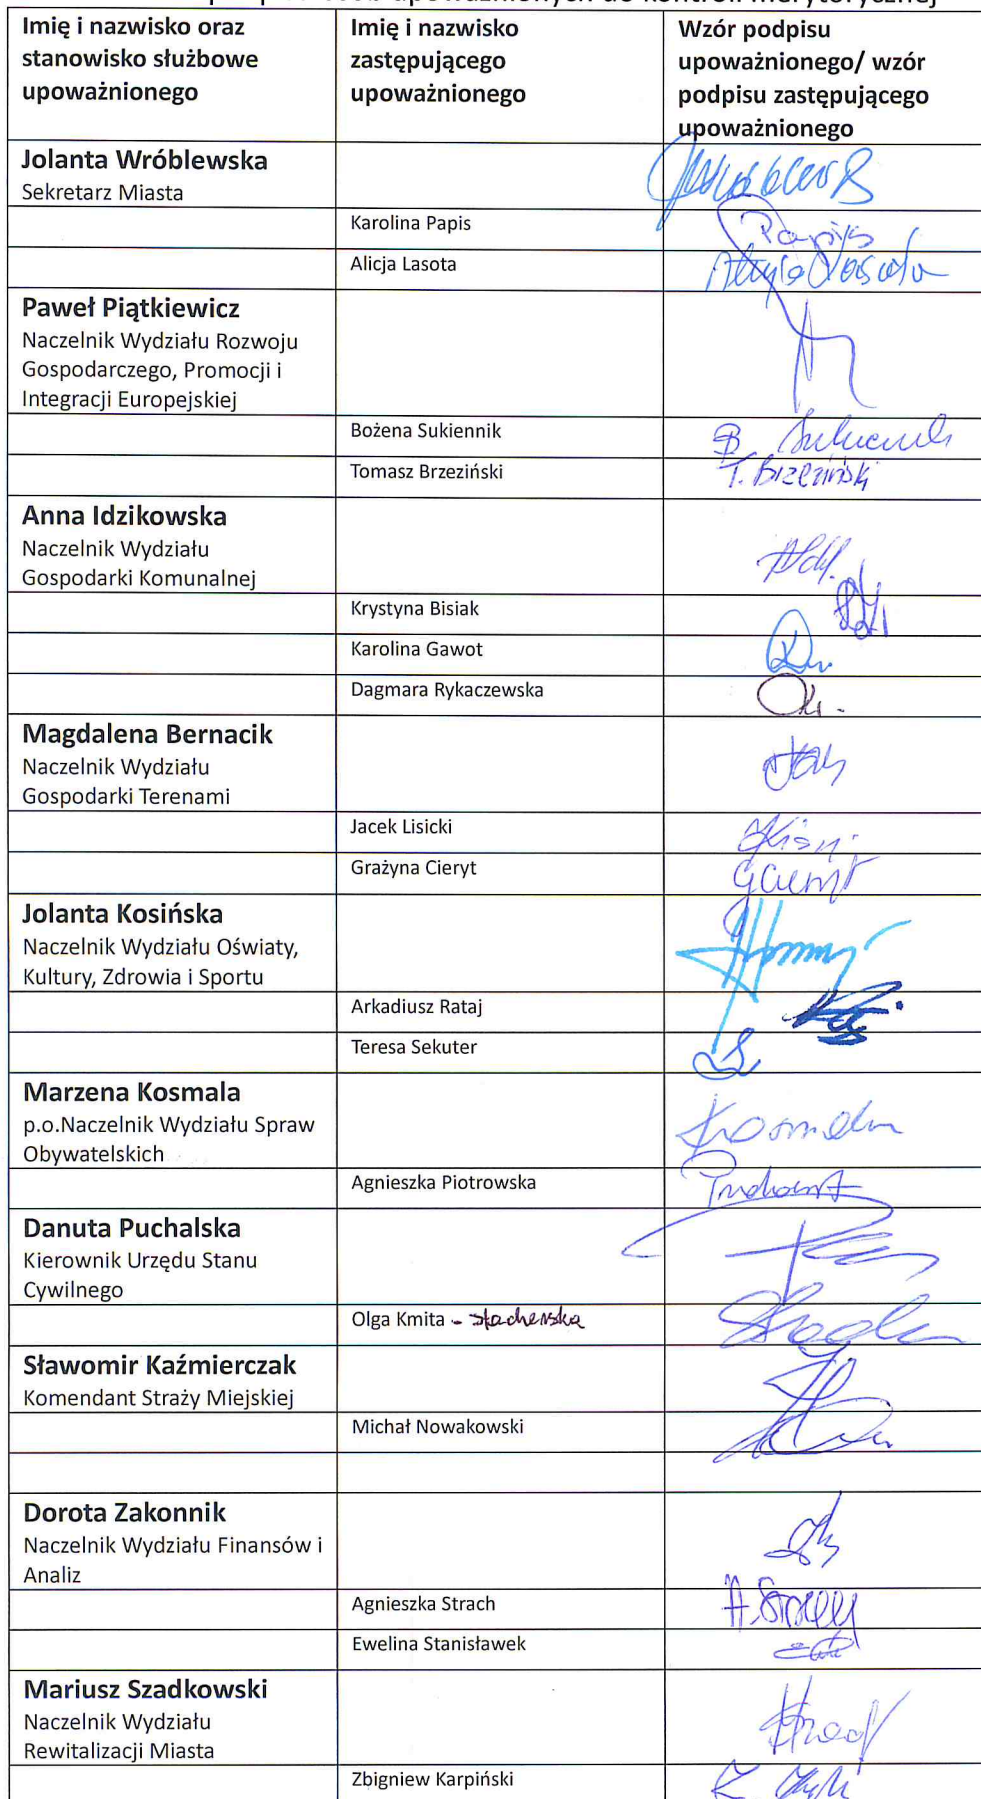 upoważnionych do kontroli merytorycznej
Imię i nazwisko oraz
stanowisko służbowe
upoważnionego
Imię i nazwisko
zastępującego
upoważnionego
Wzór podpisu
upoważnionego/ wzór
podpisu zastępującego
upoważnionego
Jolanta Wróblewska
Sekretarz Miasta
Karolina Papis
Papis
Alicja Lasota
Alicja Lasota
Paweł Piątkiewicz
Naczelnik Wydziału Rozwoju
Gospodarczego, Promocji i
Integracji Europejskiej
Bożena Sukiennik
B Sukiennik
Tomasz Brzeziński
T. Brzeziński
Anna Idzikowska
Naczelnik Wydziału
Gospodarki Komunalnej
Krystyna Bisiak
Karolina Gawot
Dagmara Rykaczewska
Magdalena Bernacik
Naczelnik Wydziału
Gospodarki Terenami
Jacek Lisicki
Grażyna Cieryt
GCieryt
Jolanta Kosińska
Naczelnik Wydziału Oświaty,
Kultury, Zdrowia i Sportu
Arkadiusz Rataj
Teresa Sekuter
Marzena Kosmala
p.o.Naczelnik Wydziału Spraw
Obywatelskich
Kosmala
Agnieszka Piotrowska
Danuta Puchalska
Kierownik Urzędu Stanu
Cywilnego
Olga Kmita - Stacherska
Sławomir Kaźmierczak
Komendant Straży Miejskiej
Michał Nowakowski
Dorota Zakonnik
Naczelnik Wydziału Finansów i
Analiz
Agnieszka Strach
A. Strach
Ewelina Stanisławek
Mariusz Szadkowski
Naczelnik Wydziału
Rewitalizacji Miasta
Zbigniew Karpiński